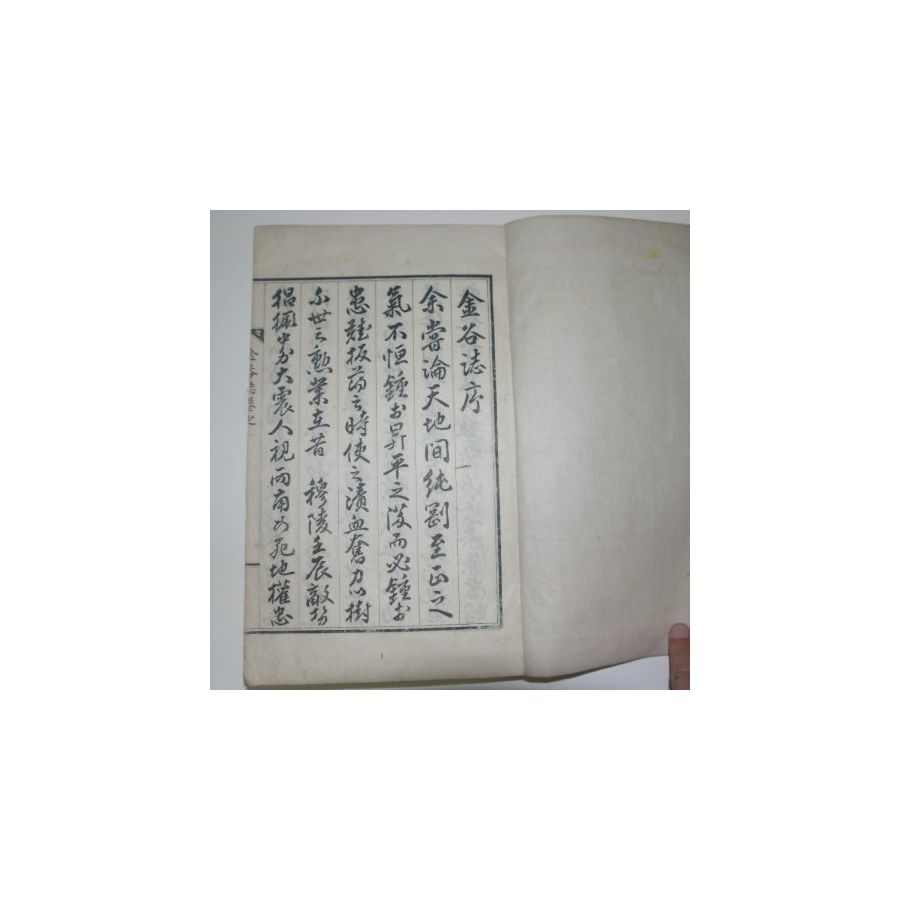 金谷誌序
余嘗論天地間純剛至正之
氣不恒鍾於昇平之後而必鍾於
患難板蕩之時使之瀆血奮力以樹
不世之勲業在昔 穆陵壬辰敵勢
猖獗中外大震人視兩南為死地權忠
金谷誌卷之